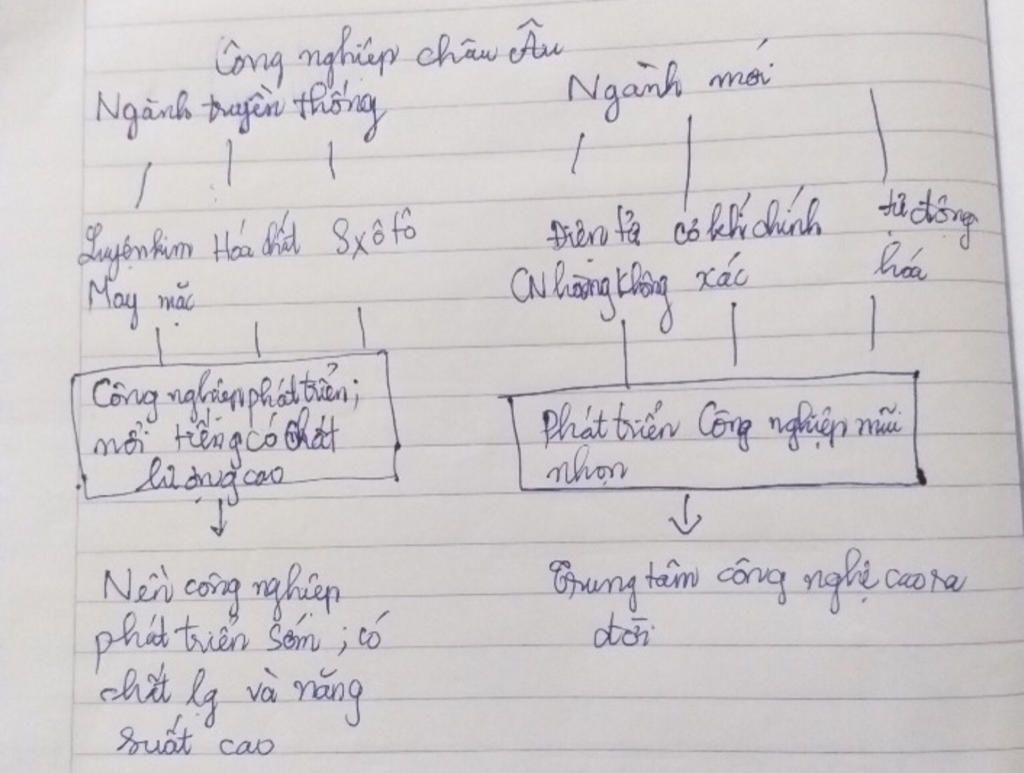 Công nghiệp châu Âu
Ngành truyền thống
Ngành mới
Luyện kim Hóa chất Sx ô tô
May mặc
Điện tử cơ khí chính tự động
CN hàng không xác hóa
Công nghiệp phát triển;
nổi tiếng có chất
lượng cao
Phát triển Công nghiệp mũi
nhọn
Nền công nghiệp
phát triển sớm; có
chất lg và năng
suất cao
Trung tâm công nghệ cao ra
đời